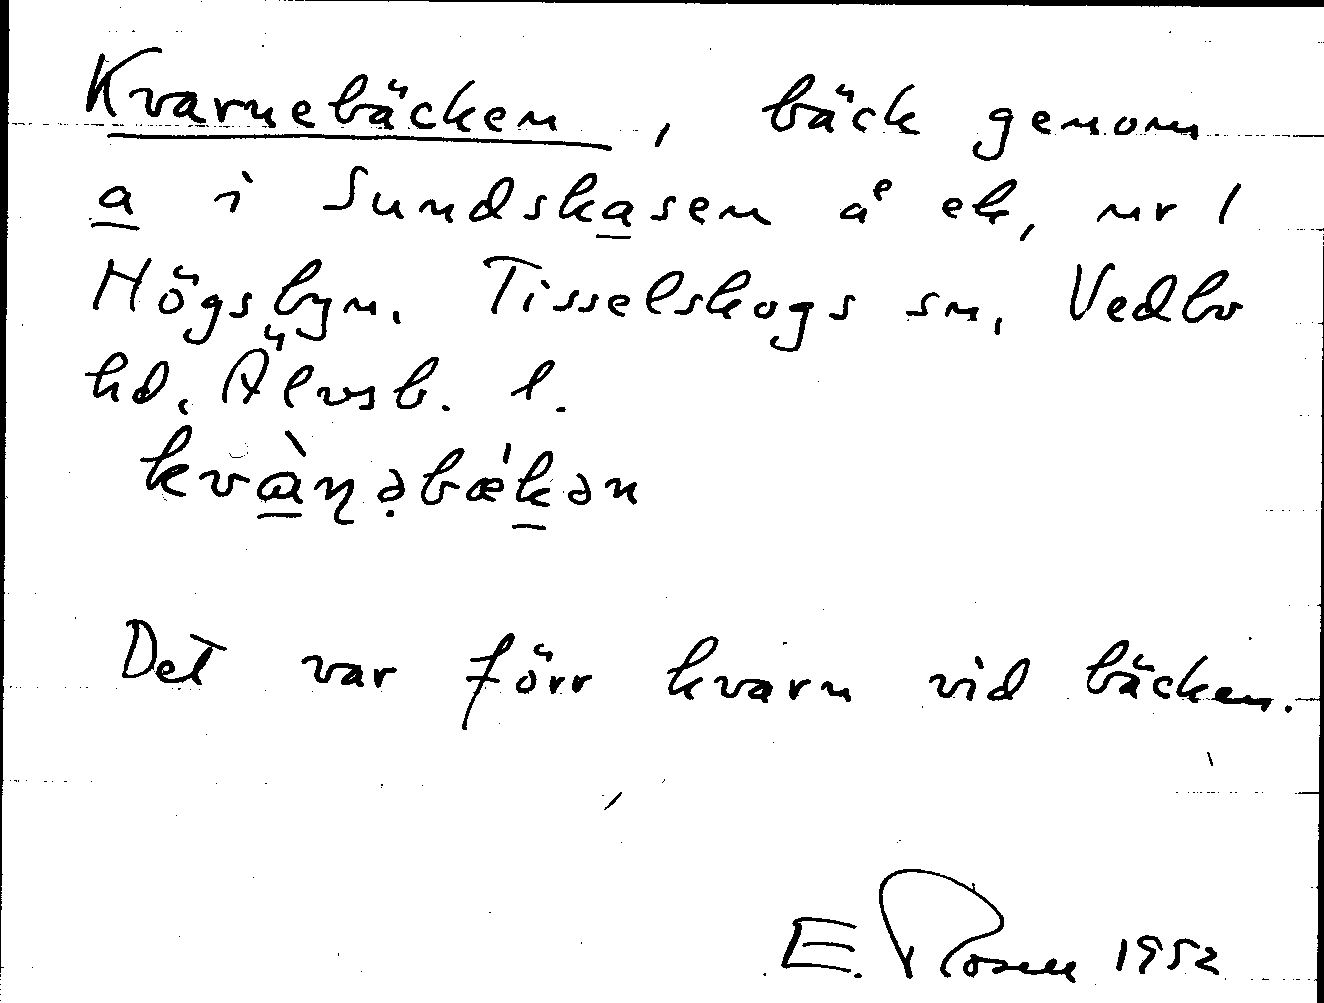 Kvarnebäcken, bäck genom
a i Sundskasen å ek, nr 1
Högsbyn. Tisselskogs sn, Vedbo
hd. Älvsb. l.
kvàɳəbǽkən
Det var förr kvarn vid bäcken.
E. Rosell 1952